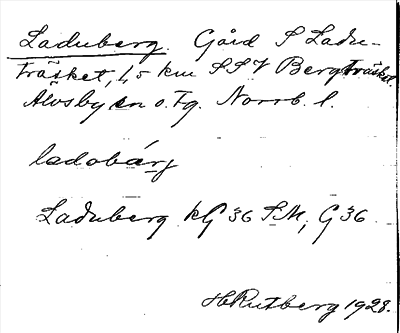 Laduberg. Gård S Ladu-
träsket, 1,5 km SSV Bergträsket.
Älvsby sn o. tg. Norrb. l.
ladobárj
Laduberg kG 36 SM, G 36
H Rutberg 1928.